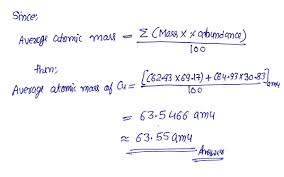 Since,
Average atomic mass = Σ (Mass x % abundance) / 100
then;
Average atomic mass of Cu = [(62.93 x 69.17) + (64.93 x 30.83)] / 100 amu
= 63.5466 amu
≈ 63.55 amu
Answer